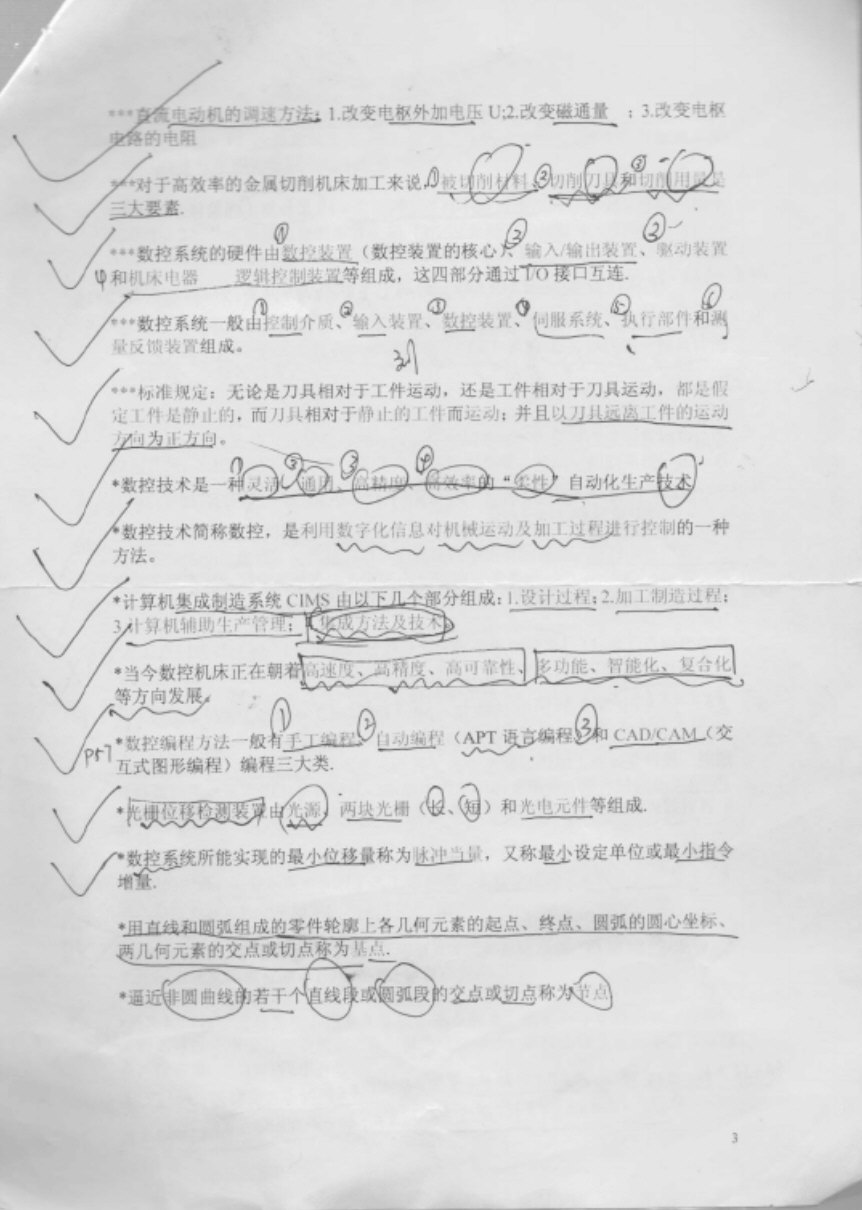 ***直流电动机的调速方法：1.改变电枢外加电压 U;2.改变磁通量 ；3.改变电枢
电路的电阻
① ② ③
***对于高效率的金属切削机床加工来说，被切削材料、切削刀具和切削用量是
三大要素.
① ② ②
***数控系统的硬件由数控装置（数控装置的核心）、输入/输出装置、驱动装置
和机床电器 逻辑控制装置等组成，这四部分通过 I/O 接口互连.
① ② ③ ④ ⑤ ⑥
***数控系统一般由控制介质、输入装置、数控装置、伺服系统、执行部件和测
量反馈装置组成。
***标准规定：无论是刀具相对于工件运动，还是工件相对于刀具运动，都是假
定工件是静止的，而刀具相对于静止的工件而运动；并且以刀具远离工件的运动
方向为正方向。
① ② ③ ④
*数控技术是一种灵活、通用、高精度、高效率的“柔性”自动化生产技术
*数控技术简称数控，是利用数字化信息对机械运动及加工过程进行控制的一种
方法。
*计算机集成制造系统 CIMS 由以下几个部分组成：1.设计过程；2.加工制造过程；
3.计算机辅助生产管理； 集成方法及技术。
*当今数控机床正在朝着高速度、高精度、高可靠性、多功能、智能化、复合化
等方向发展。
① ② ③
P57
*数控编程方法一般有手工编程、自动编程（APT 语言编程）和 CAD/CAM（交
互式图形编程）编程三大类.
*光栅位移检测装置由光源、两块光栅（长、短）和光电元件等组成.
*数控系统所能实现的最小位移量称为脉冲当量，又称最小设定单位或最小指令
增量.
*用直线和圆弧组成的零件轮廓上各几何元素的起点、终点、圆弧的圆心坐标、
两几何元素的交点或切点称为基点.
*逼近非圆曲线的若干个直线段或圆弧段的交点或切点称为节点
3